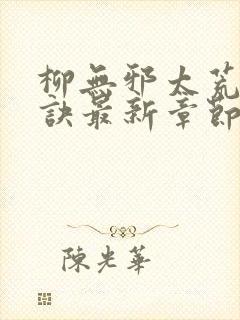 柳無邪太荒
訣最新章節
陳光華